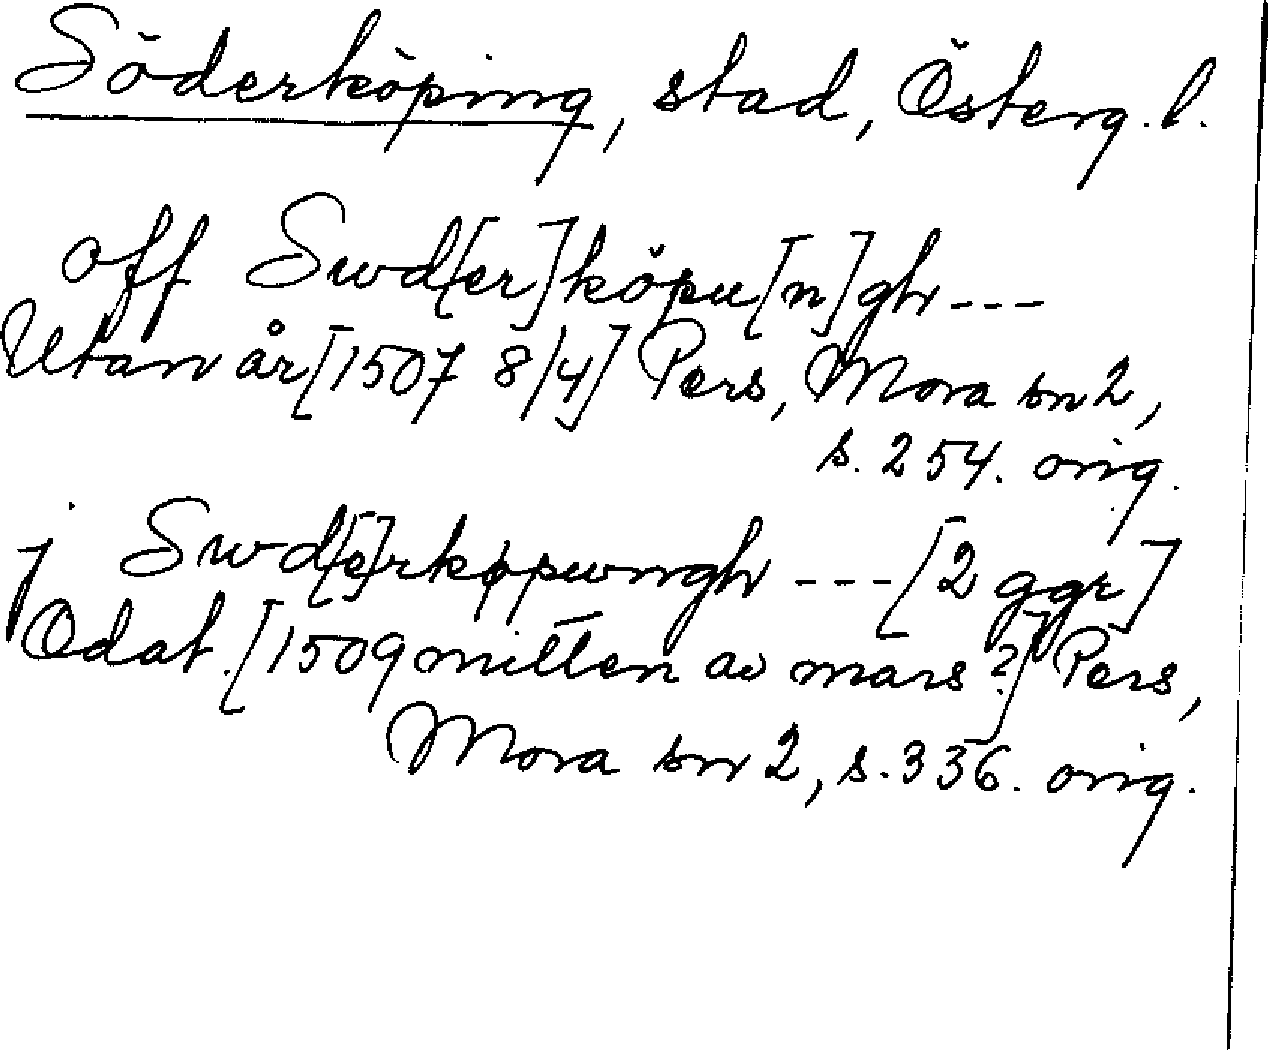 Söderköping, stad, Österg. l.
off Swd[er]köpu[n]gh ---
Utan år [1507 8/4] Pers, Mora sn 2,
s. 254. orig.
j Swd[e]rkøpwngh --- [2 ggr]
Odat. [1509 mitten av mars?] Pers,
Mora sn 2, s. 336. orig.